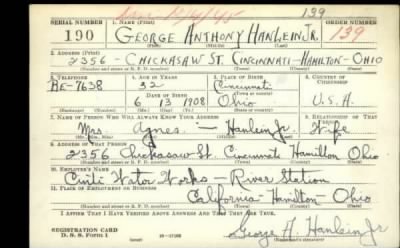 139
SERIAL NUMBER 1. NAME (Print) ORDER NUMBER
190 GEORGE ANTHONY HANLEIN JR. 139
(First) (Middle) (Last)
2. ADDRESS (Print)
2356 - CHICKASAW ST. CINCINNATI - HAMILTON - OHIO
(Number and street or R. F. D. number) (Town) (County) (State)
3. TELEPHONE 4. AGE IN YEARS 5. PLACE OF BIRTH 6. COUNTRY OF CITIZENSHIP
BE-7638 32 Cincinnati
DATE OF BIRTH (Town or county)
6 13 1908 Ohio U.S.A.
(Mo.) (Day) (Yr.) (State or country)
7. NAME OF PERSON WHO WILL ALWAYS KNOW YOUR ADDRESS 8. RELATIONSHIP OF THAT PERSON
Mrs Agnes. — Hanlein Jr. Wife
(Mr., Mrs., Miss) (First) (Middle) (Last)
9. ADDRESS OF THAT PERSON
2356 Chickasaw St. Cincinnati Hamilton Ohio
(Number and street or R. F. D. number) (Town) (County) (State)
10. EMPLOYER'S NAME
Cinti Water Works — River Station
11. PLACE OF EMPLOYMENT OR BUSINESS
California Hamilton Ohio
(Number and street or R. F. D. number) (Town) (County) (State)
I AFFIRM THAT I HAVE VERIFIED ABOVE ANSWERS AND THAT THEY ARE TRUE.
REGISTRATION CARD
D. S. S. Form 1 George A. Hanlein Jr
(Registrant's signature)